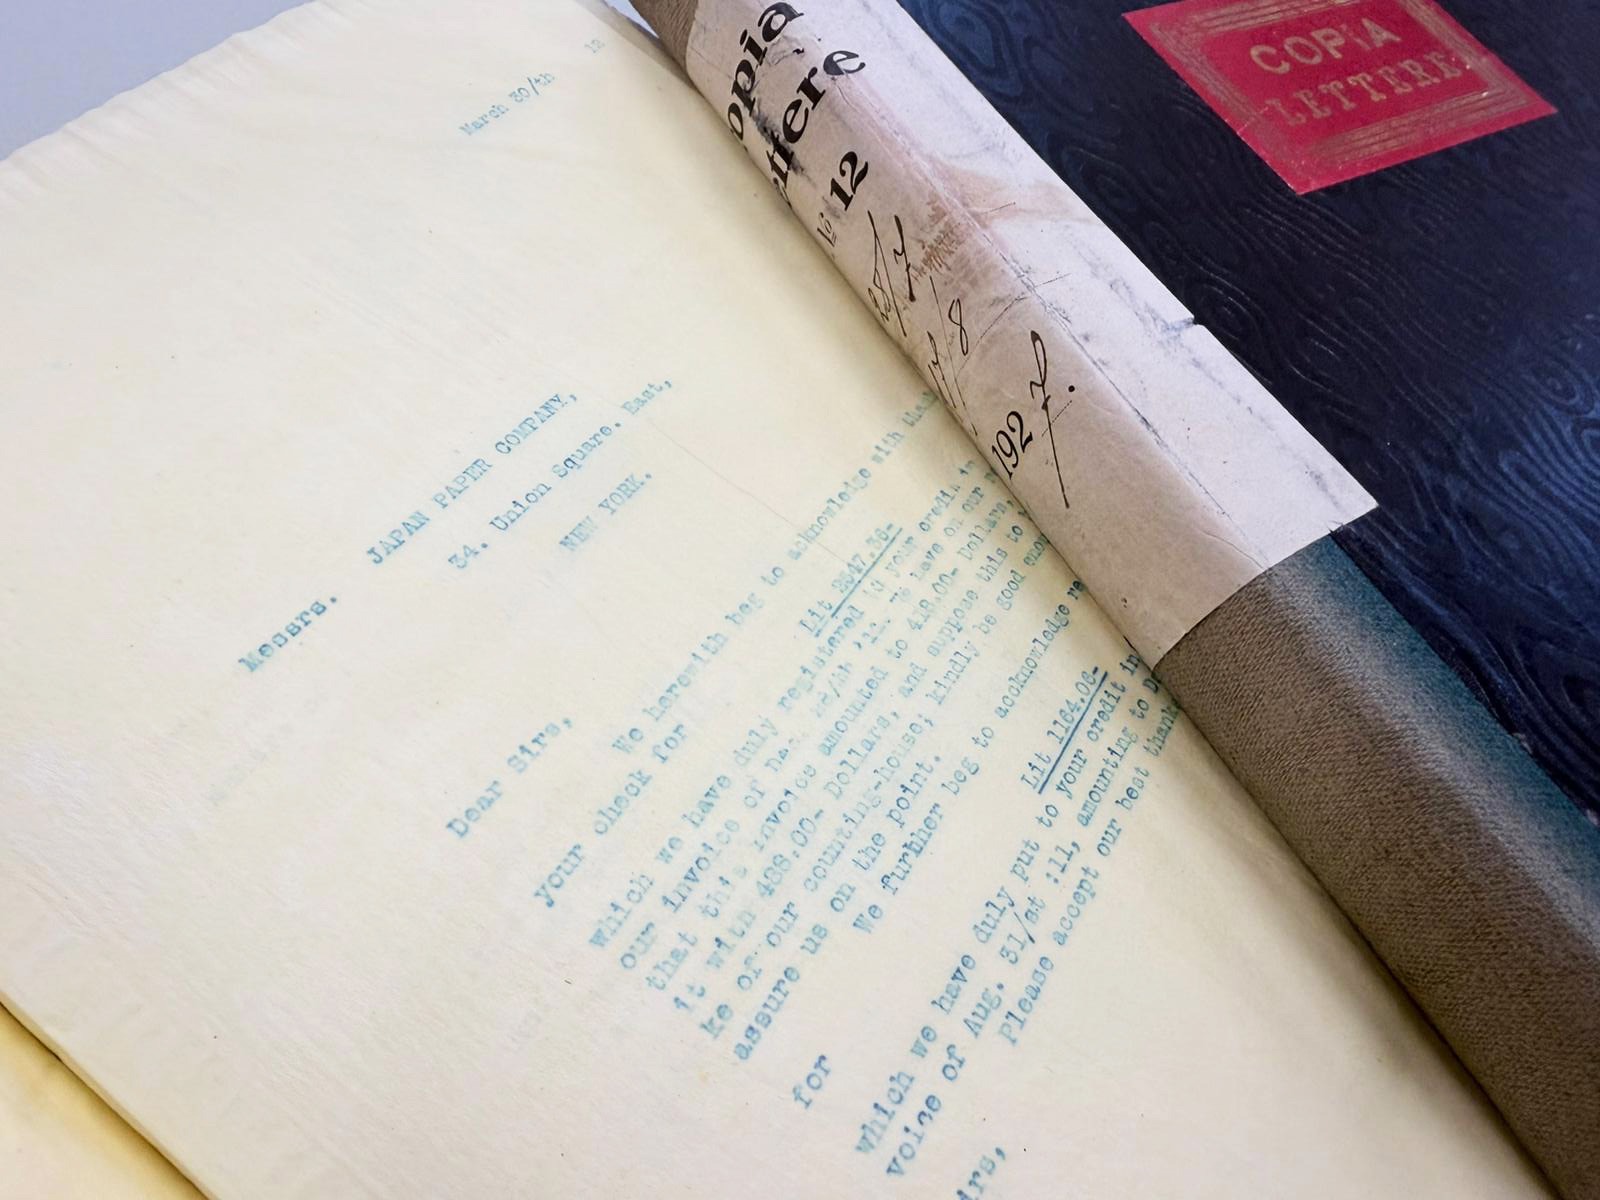 March 30/th 12
Messrs. JAPAN PAPER COMPANY,
34. Union Square. East,
NEW YORK.
Dear Sirs,
We herewith beg to acknowledge with
your check for
Lit 2547.36-
which we have duly registered to your credit
our invoice of /th ,11. We have on our
that this invoice amounted to 418.00- Dollars,
it with 488.00- Dollars, and suppose this to
ke or our counting-house; kindly be good
assure us on the point.
We further beg to acknowledge
for
Lit 1164.06-
which we have duly put to your credit in
voice of Aug. 31/st ,11, amounting to
Please accept our best
irs,
opia
ettere
No 12
192 7.
COPIA
LETTERE